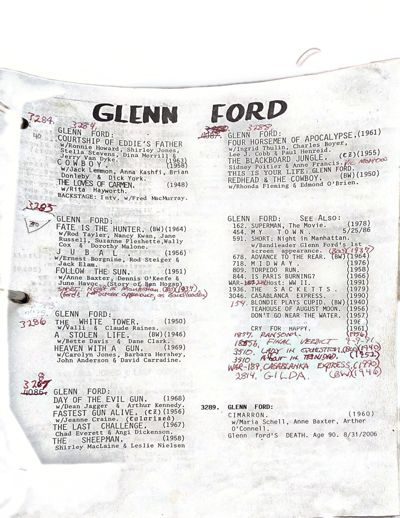 GLENN FORD
3284.
3284,
GLENN FORD:
COURTSHIP OF EDDIE'S FATHER
w/Ronnie Howard, Shirley Jones,
Stella Stevens, Dina Merrill &
Jerry Van Dyke. (1963)
C O W B O Y. (1958)
w/Jack Lemmon, Anna Kashfi, Brian
Donleby & Dick York.
THE LOVES OF CARMEN. (1948)
w/Rita Hayworth.
BACKSTAGE: Intv. w/Fred MacMurray.
3285
GLENN FORD:
FATE IS THE HUNTER. (BW)(1964)
w/Rod Taylor, Nancy Kwan, Jane
Russell, Suzanne Pleshette, Wally
Cox & Dorothy Malone.
U B A L. (1956)
w/Ernest Borgnine, Rod Steiger &
Jack Elam.
FOLLOW THE SUN. (1951)
w/Anne Baxter, Dennis O'Keefe &
June Havoc. (Story of Ben Hogan)
3286
GLENN FORD:
THE WHITE TOWER. (1950)
w/Valli & Claude Raines.
A STOLEN LIFE. (BW)(1946)
w/Bette Davis & Dane Clark.
HEAVEN WITH A GUN. (1969)
w/Carolyn Jones, Barbara Hershey,
John Anderson & David Carradine.
3287
GLENN FORD:
DAY OF THE EVIL GUN. (1968)
w/Dean Jagger & Arthur Kennedy.
FASTEST GUN ALIVE. (c2)(1956)
w/Jeanne Craine. (Colorized)
THE LAST CHALLENGE. (1967)
Chad Everett & Angi Dickenson.
THE SHEEPMAN. (1958)
Shirley MacLaine & Leslie Nielsen
3288.
GLENN FORD:
FOUR HORSEMEN OF APOCALYPSE. (1961)
w/Ingrid Thulin, Charles Boyer,
Lee J. Cobb & Paul Henreid.
THE BLACKBOARD JUNGLE. (c2)(1955)
Sidney Poitier & Anne Francis.
THIS IS YOUR LIFE: GLENN FORD.
REDHEAD & THE COWBOY. (BW)(1950)
w/Rhonda Fleming & Edmond O'Brien.
GLENN FORD: See Also:
162. SUPERMAN, The Movie. (1978)
454. M Y T O W N . 5/25/86
591. SHORT: Night in Manhattan.
w/Bandleader Glenn Ford's 1st
screen appearance. (BW)(1937)
678. ADVANCE TO THE REAR. (BW)(1964)
718. M I D W A Y. (1976)
809. TORPEDO RUN. (1958)
844. IS PARIS BURNING? (1966)
WAR- Host: WW II. (1991)
1936. THE S A C K E T T S. (1979)
3046. CASABLANCA EXPRESS. (1990)
154. BLONDIE PLAYS CUPID. (BW)(1940)
TEAHOUSE OF AUGUST MOON. (1956)
DON'T GO NEAR THE WATER. (1957)
CRY FOR HAPPY. (1961)
1837. RANSOM!. (1956)
FINAL VERDICT
3510. LADY IN QUESTION. (BW)(1940)
3510 AFFAIR IN TRINIDAD. (1952)
WAR-189. CASABLANKA EXPRESS. (1990)
2814. GILDA (BW)(1946)
3289. GLENN FORD:
CIMARRON. (1960)
w/Maria Schell, Anne Baxter, Arther
O'Connell.
Glenn Ford's DEATH. Age 90. 8/31/2006